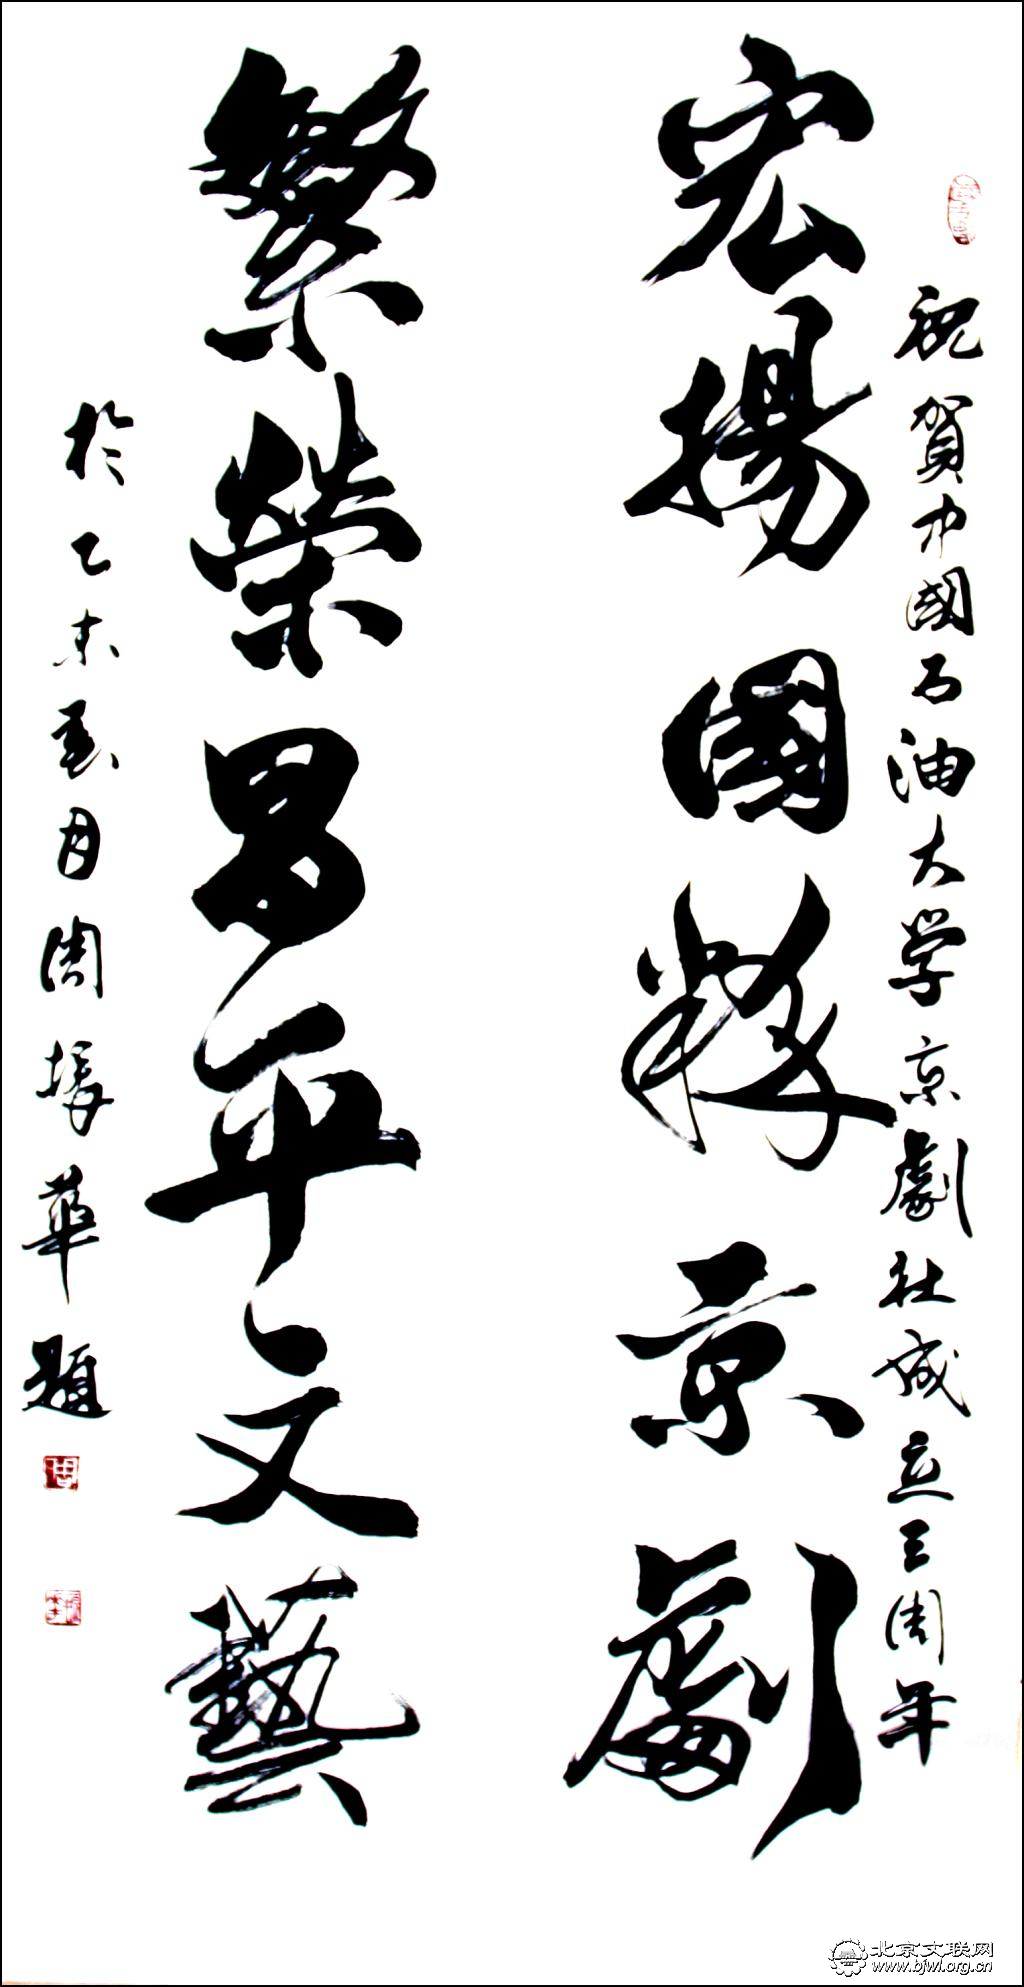 祝賀中國石油大学京劇社成立三周年
宏揚國粹京劇
繁榮昌平文藝
於乙未春月周墀華題
北京文联网
www.bjwl.org.cn